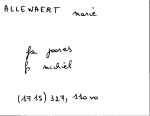 ALLEWAERT marie
fs joores
fs michiel
(1715) 327, 110 vo